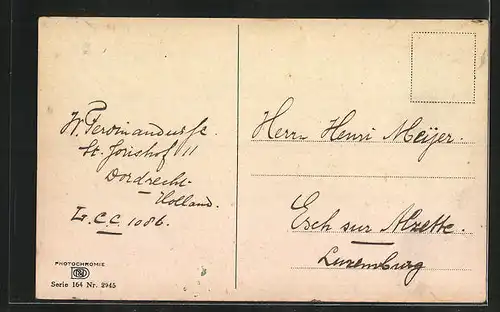 W. Ferdinandusse
St. Jorishof 11
Dordrecht-
Holland.
L.C.C. 1086.
PHOTOCHROMIE
Serie 164 Nr. 2945
Herrn Henri Meijer.
Esch sur Alzette.
Luxemburg